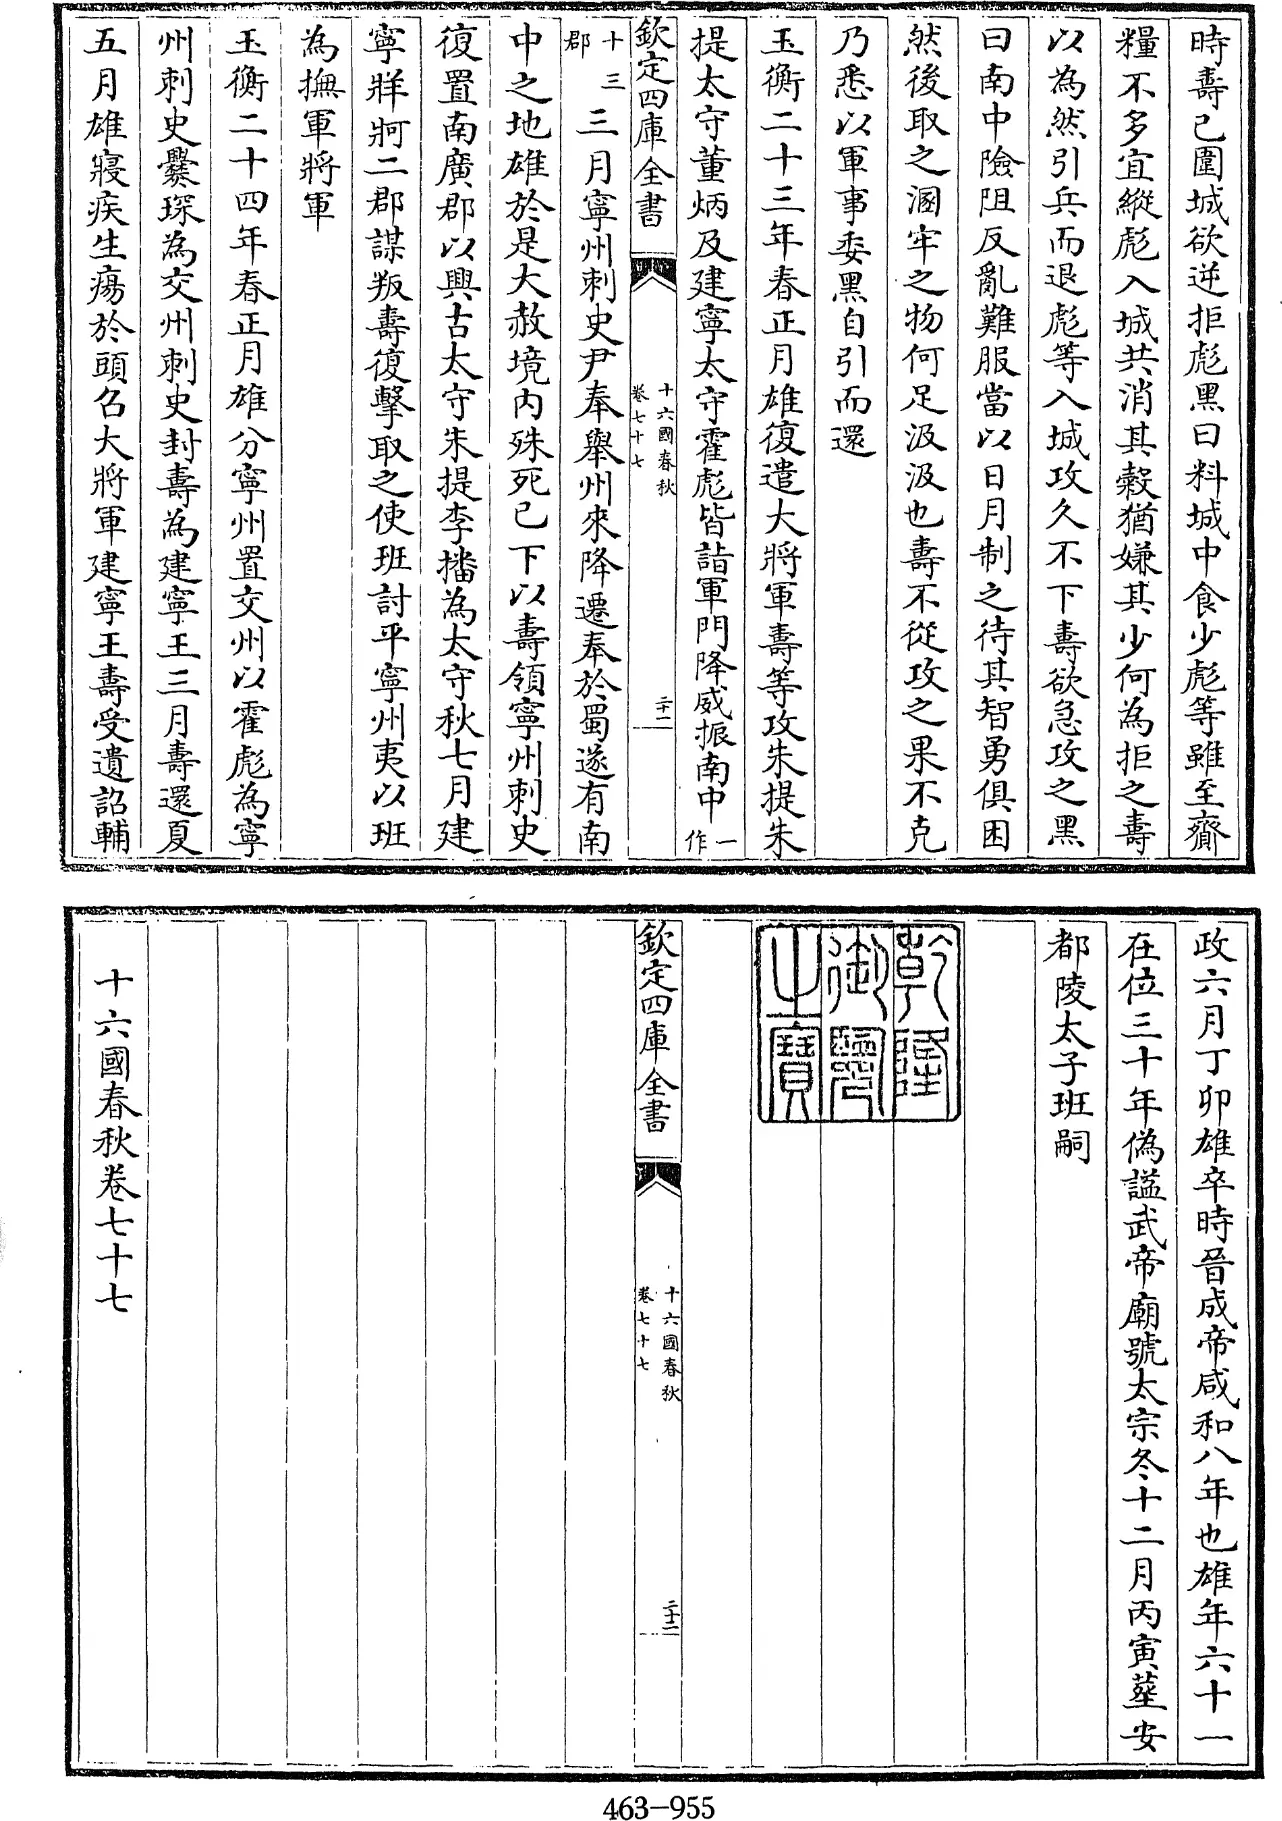 時壽已圍城欲逆拒彪黑曰料城中食少彪等雖至齎
糧不多宜縱彪入城共消其穀猶嫌其少何為拒之壽
以為然引兵而退彪等入城攻久不下壽欲急攻之黑
曰南中險阻反亂難服當以日月制之待其智勇俱困
然後取之溷牢之物何足汲汲也壽不從攻之果不克
乃悉以軍事委黑自引而還
玉衡二十三年春正月雄復遣大將軍壽等攻朱提朱
提太守董炳及建寧太守霍彪皆詣軍門降威振南中
一作
欽定四庫全書
十六國春秋
卷七十七
二十一
十三
郡
三月寧州刺史尹奉舉州來降遷奉於蜀遂有南
中之地雄於是大赦境内殊死已下以壽領寧州刺史
復置南廣郡以興古太守朱提李播為太守秋七月建
寧牂牁二郡謀叛壽復擊取之使班討平寧州夷以班
為撫軍將軍
玉衡二十四年春正月雄分寧州置交州以霍彪為寧
州刺史爨琛為交州刺史封壽為建寧王三月壽還夏
五月雄寢疾生瘍於頭召大將軍建寧王壽受遺詔輔
政六月丁卯雄卒時晉成帝咸和八年也雄年六十一
在位三十年偽諡武帝廟號太宗冬十二月丙寅葬安
都陵太子班嗣
乾隆
御覽
之寶
欽定四庫全書
十六國春秋
卷七十七
二十二
十六國春秋卷七十七
463-955